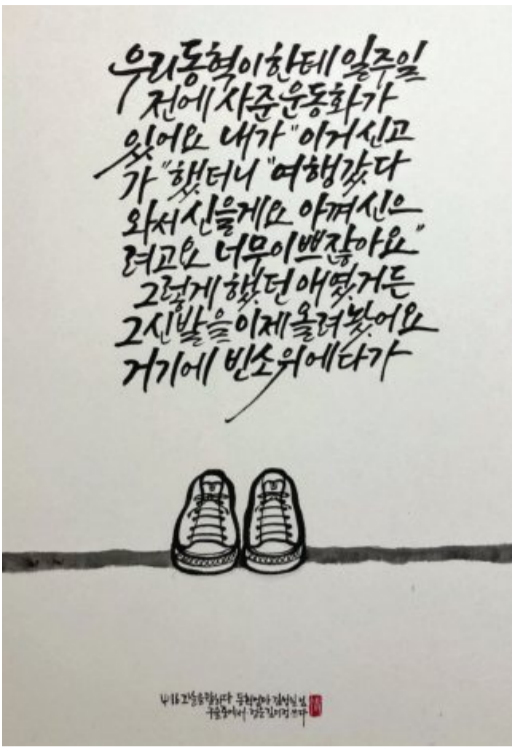 우리동혁이한테 일주일
전에 사준운동화가
있어요 내가 "이거신고
가" 했더니 "여행갔다
와서신을게요 아껴신으
려고요 너무이쁘잖아요"
그렇게했던애였거든
그신발을이제올려놨어요
거기에 빈소위에다가
416 그날을말하다 동혁엄마 김성실님
구술중에서